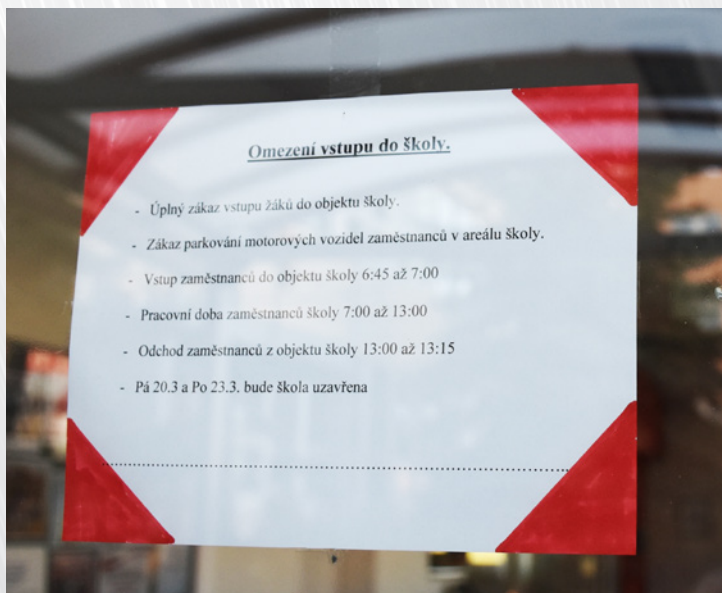 Omezení vstupu do školy.
- Úplný zákaz vstupu žáků do objektu školy.
- Zákaz parkování motorových vozidel zaměstnanců v areálu školy.
- Vstup zaměstnanců do objektu školy 6:45 až 7:00
- Pracovní doba zaměstnanců školy 7:00 až 13:00
- Odchod zaměstnanců z objektu školy 13:00 až 13:15
- Pá 20.3 a Po 23.3. bude škola uzavřena